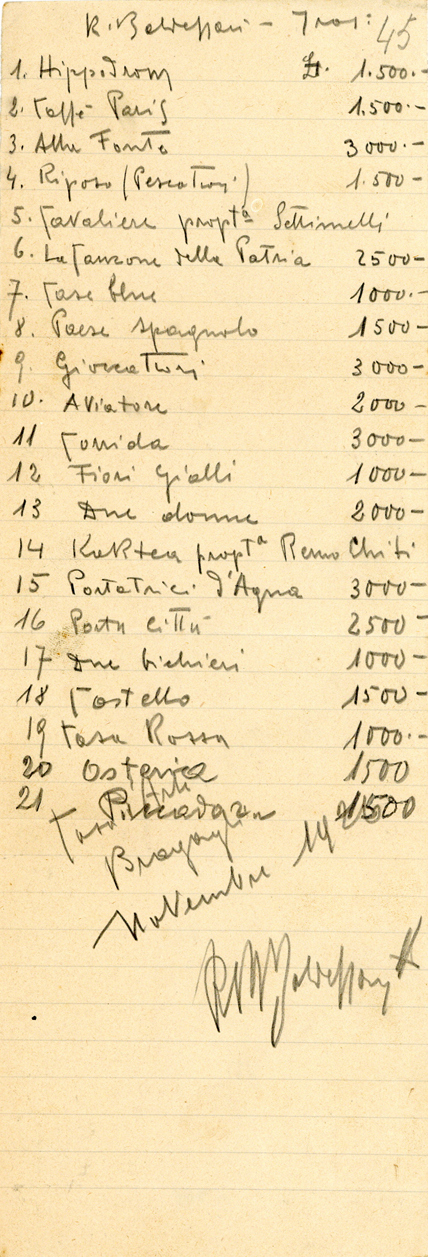 R. Baldessari -
45
1. Hippodrom £. 1.500.-
2. Caffè Paris 1.500.-
3. Alla Fonte 3000.-
4. Riposo (Pescatori) 1.500-
5. Cavaliere proptà Settimelli
6. La Canzone della Patria 2500-
7. Case blue 1000.-
8. Paese spagnolo 1500-
9. Giocatori 3000-
10. Aviatore 2000-
11 Corrida 3000-
12 Fiori Gialli 1000-
13 Due donne 2000-
14 proptà Remo Chiti
15 Portatrici d'Aqua 3000-
16 Porta città 2500-
17 Due bichieri 1000-
18 Castello 1500-
19 Casa Rossa 1000.-
20 Osteria 1500
21 1500
Casa d'Arte
Bragaglia
Novembre
R.M. Baldessari